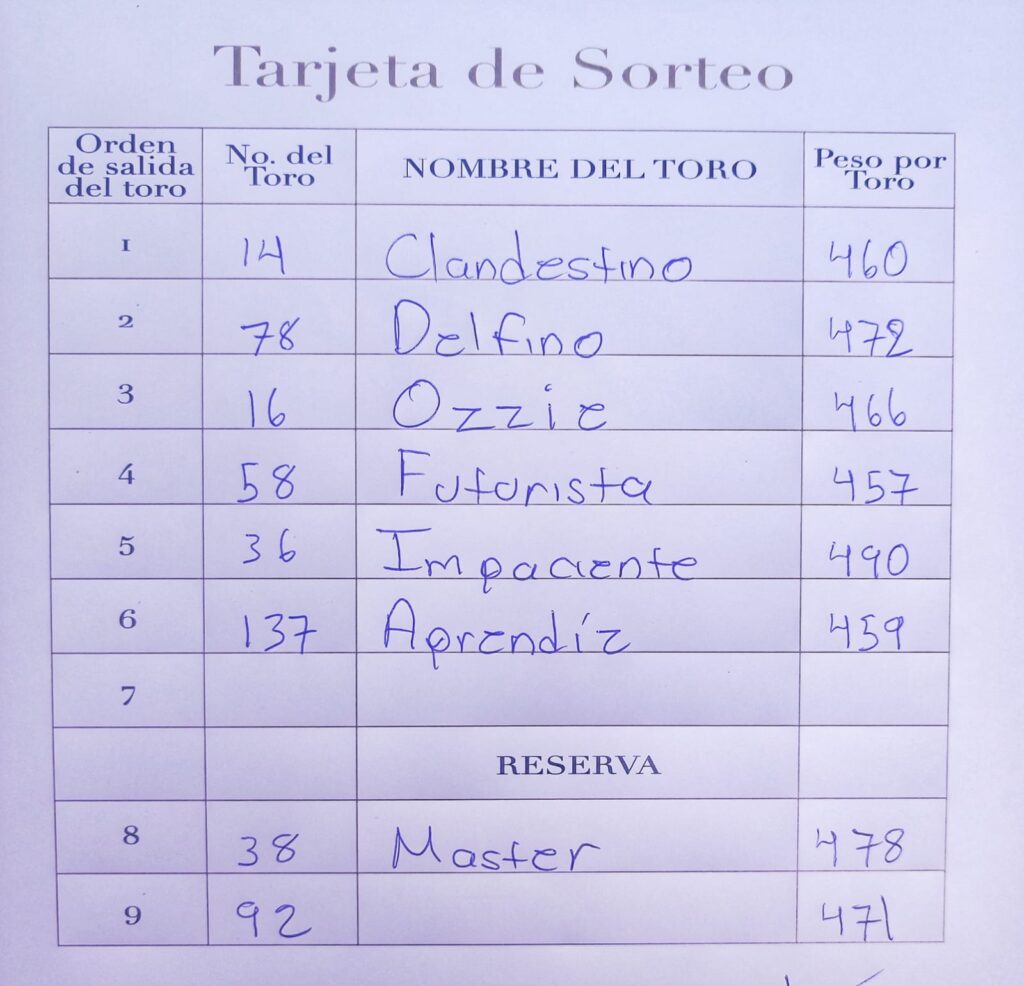 Tarjeta de Sorteo
Orden de salida del toro No. del Toro NOMBRE DEL TORO Peso por Toro
1 14 Clandestino 460
2 78 Delfino 472
3 16 Ozzie 466
4 58 Futurista 457
5 36 Impaciente 490
6 137 Aprendíz 459
7
RESERVA
8 38 Master 478
9 92 471